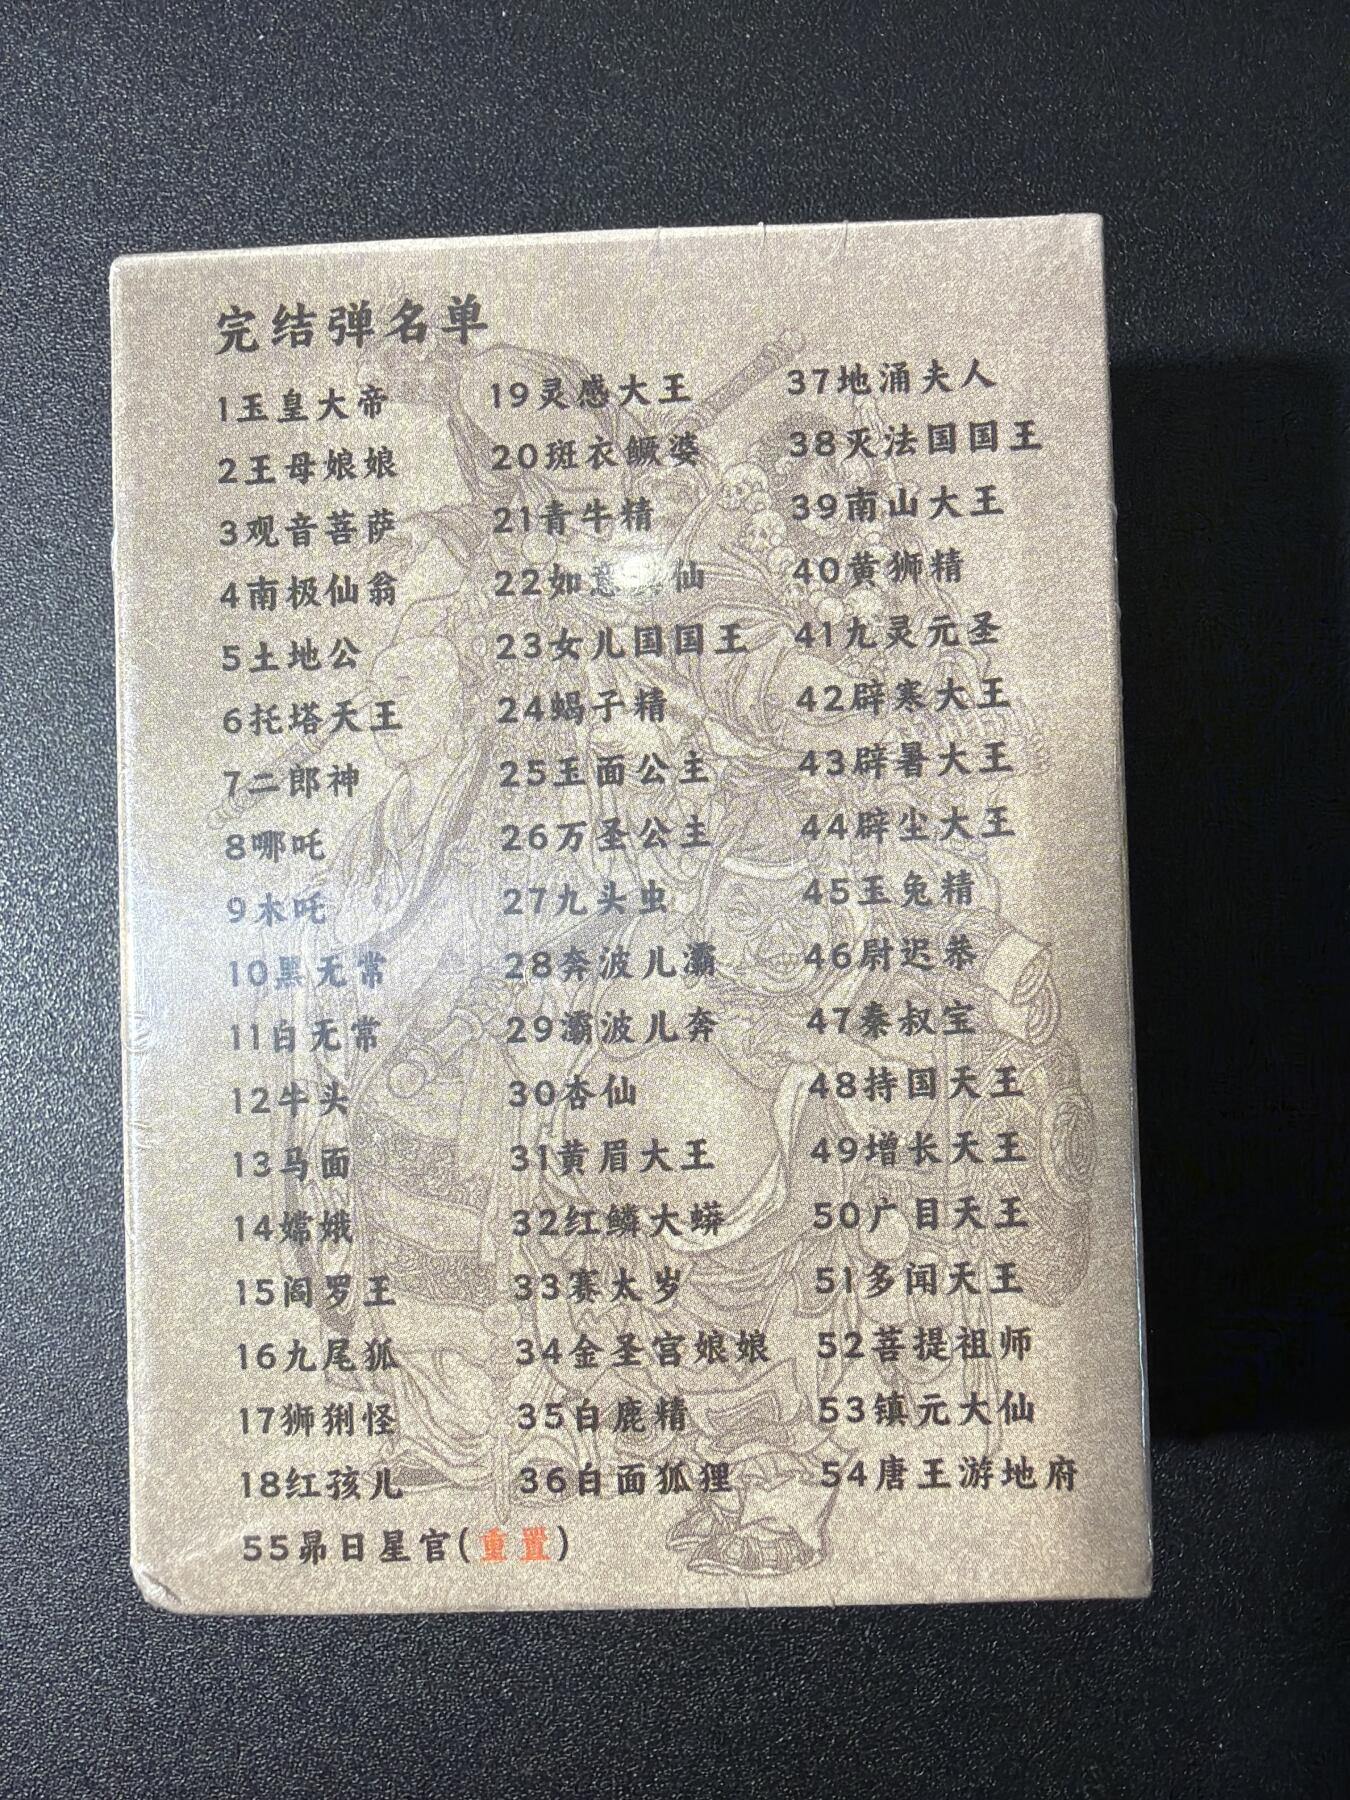 完结弹名单
1玉皇大帝
2王母娘娘
3观音菩萨
4南极仙翁
5土地公
6托塔天王
7二郎神
8哪吒
9木吒
10黑无常
11白无常
12牛头
13马面
14嫦娥
15阎罗王
16九尾狐
17狮猁怪
18红孩儿
19灵感大王
20斑衣鳜婆
21青牛精
22如意 仙
23女儿国国王
24蝎子精
25玉面公主
26万圣公主
27九头虫
28奔波儿灞
29灞波儿奔
30杏仙
31黄眉大王
32红鳞大蟒
33赛太岁
34金圣宫娘娘
35白鹿精
36白面狐狸
37地涌夫人
38灭法国国王
39南山大王
40黄狮精
41九灵元圣
42辟寒大王
43辟暑大王
44辟尘大王
45玉兔精
46尉迟恭
47秦叔宝
48持国天王
49增长天王
50广目天王
51多闻天王
52菩提祖师
53镇元大仙
54唐王游地府
55昴日星官(重置)